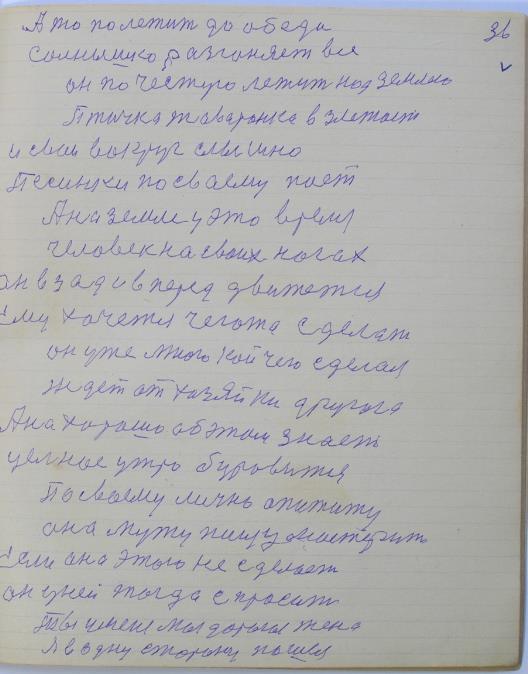 36
А то полетит до обеда
Солнышко разгоняет все
он почестую летит над землю
Птичка жаваронка взлетает
и свои вокруг слышно
Песинки посваему поет
А на земле у это время
человек на своих ногах
он взад и вперед движется
Ему хочется чегожа сделат
он уже много кой чего сделал
ждет от хозяйки другога
Ана хорошо об этом знает
целное утро буровится
Посваему личнь апититу
она мужу пищу мастерить
Если она этого не сделает
он у ней тогда спросит
Ты у мене моя дорогая жена
Я в одну сторону пошел